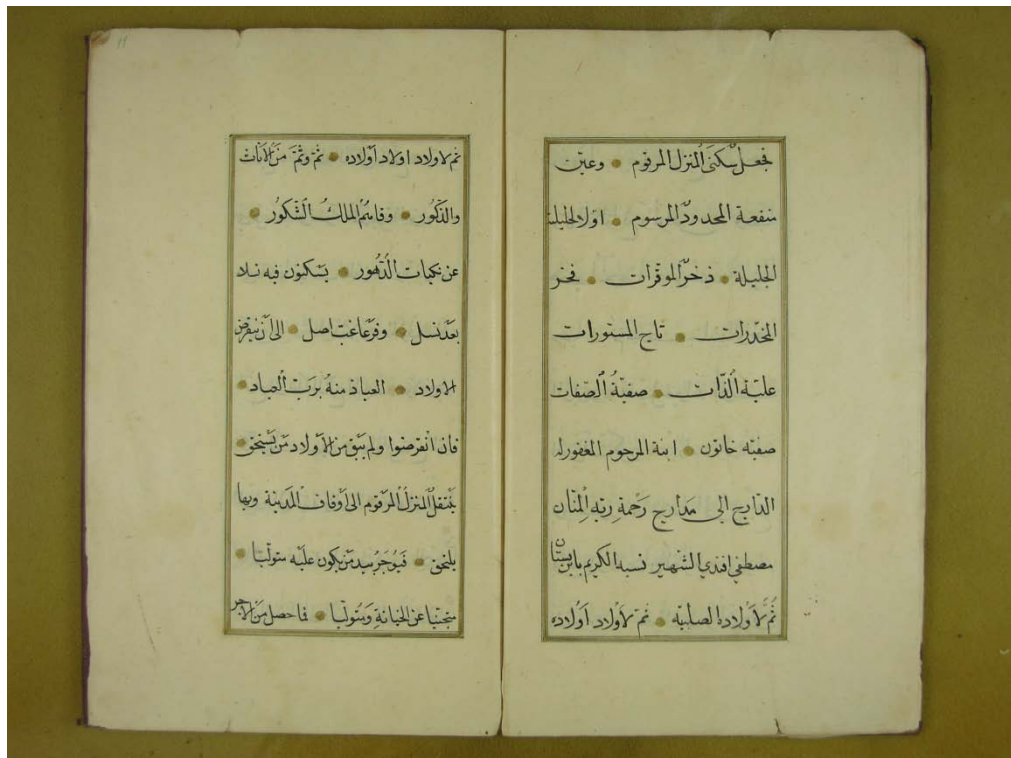 فجعل سكنى المنزل المرقوم وعين
منفعة المحدود المرسوم اولا لجليلة
الجليلة ذخر الموقرات فخر
المخدرات تاج المستورات
علية الذات صفية الصفات
صفيه خاتون ابنة المرحوم المغفورله
الدارج الى مدارج رحمة ربه المنان
مصطفى افندي الشهير نسبه الكريم بابن بستان
ثم لاولاده الصلبيه ثم لاولاد اولاده
ثم لاولاد اولاد اولاده ثم وثم من الاناث
والذكور وقاهم الملك الشكور
عن نكبات الدهور يسكنون فيه نسلا
بعد نسل وفرعا غب اصل الى ان ينقرض
الاولاد العياذ منه برب العباد
فان انقرضوا ولم يبق من الاولاد من يستحق
ينتقل المنزل المرقوم الى اوقاف المدينة وبها
يلتحق فيوجر بيد من يكون عليه متوليا
مجتنبا عن الخيانة ومتوليا فما حصل من الاجر